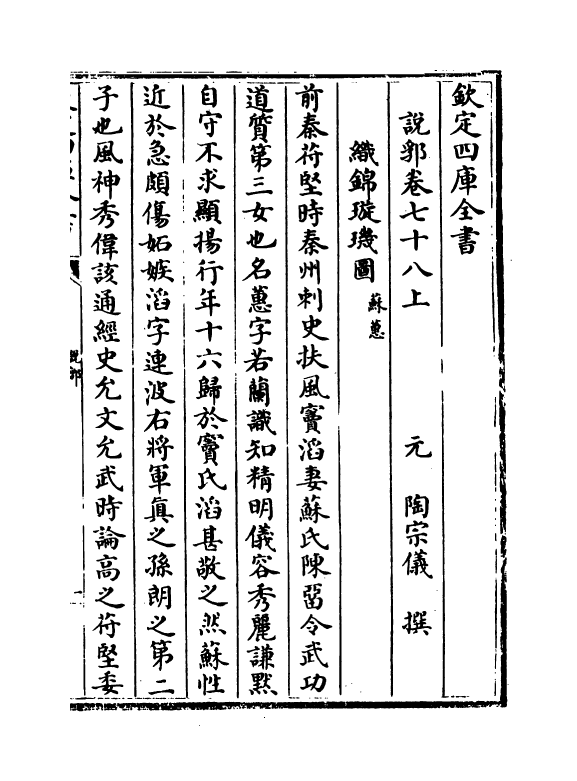 欽定四庫全書
說郛卷七十八上
元 陶宗儀 撰
織錦璇璣圖 蘇蕙
前秦苻堅時秦州刺史扶風竇滔妻蘇氏陳留令武功
道質第三女也名蕙字若蘭識知精明儀容秀麗謙默
自守不求顯揚行年十六歸於竇氏滔甚敬之然蘇性
近於急頗傷妬嫉滔字連波右將軍眞之孫朗之第二
子也風神秀偉該通經史允文允武時論高之苻堅委
說郛